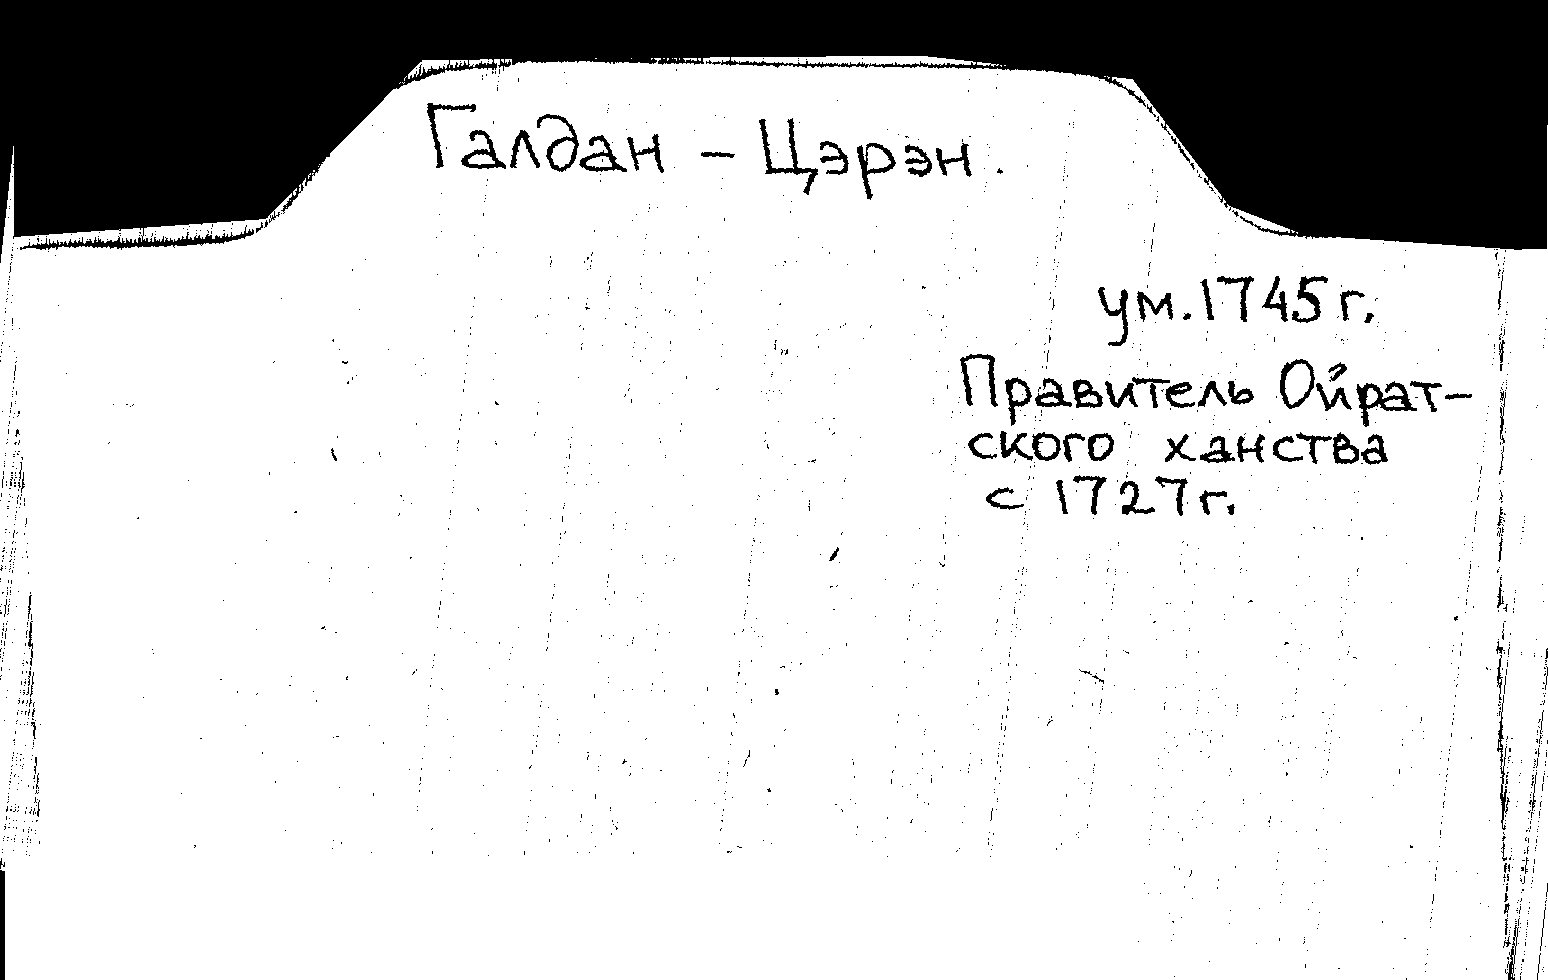 Галдан - Цэрэн.
ум. 1745 г.
Правитель Ойрат-
ского ханства
с 1727 г.